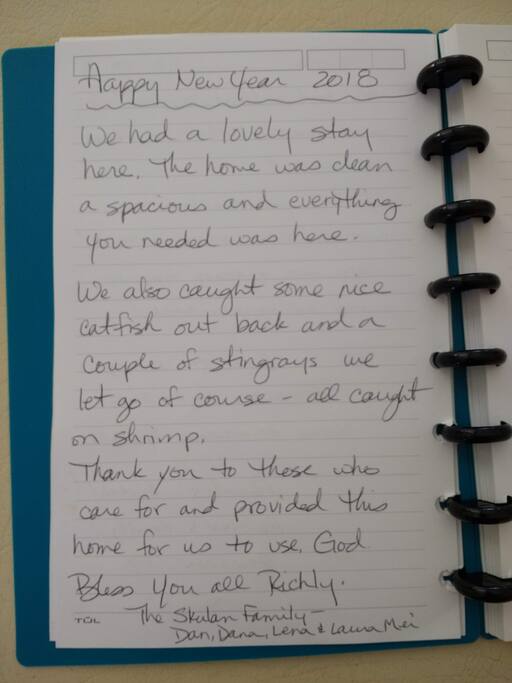 Happy New Year 2018
We had a lovely stay
here. The home was clean
a spacious and everything
you needed was here.
We also caught some nice
catfish out back and a
couple of stingrays we
let go of course - all caught
on shrimp.
Thank you to these who
care for and provided this
home for us to use. God
Bless You all Richly.
The Skulan Family -
Dan, Dana, Lena & Laura Mei